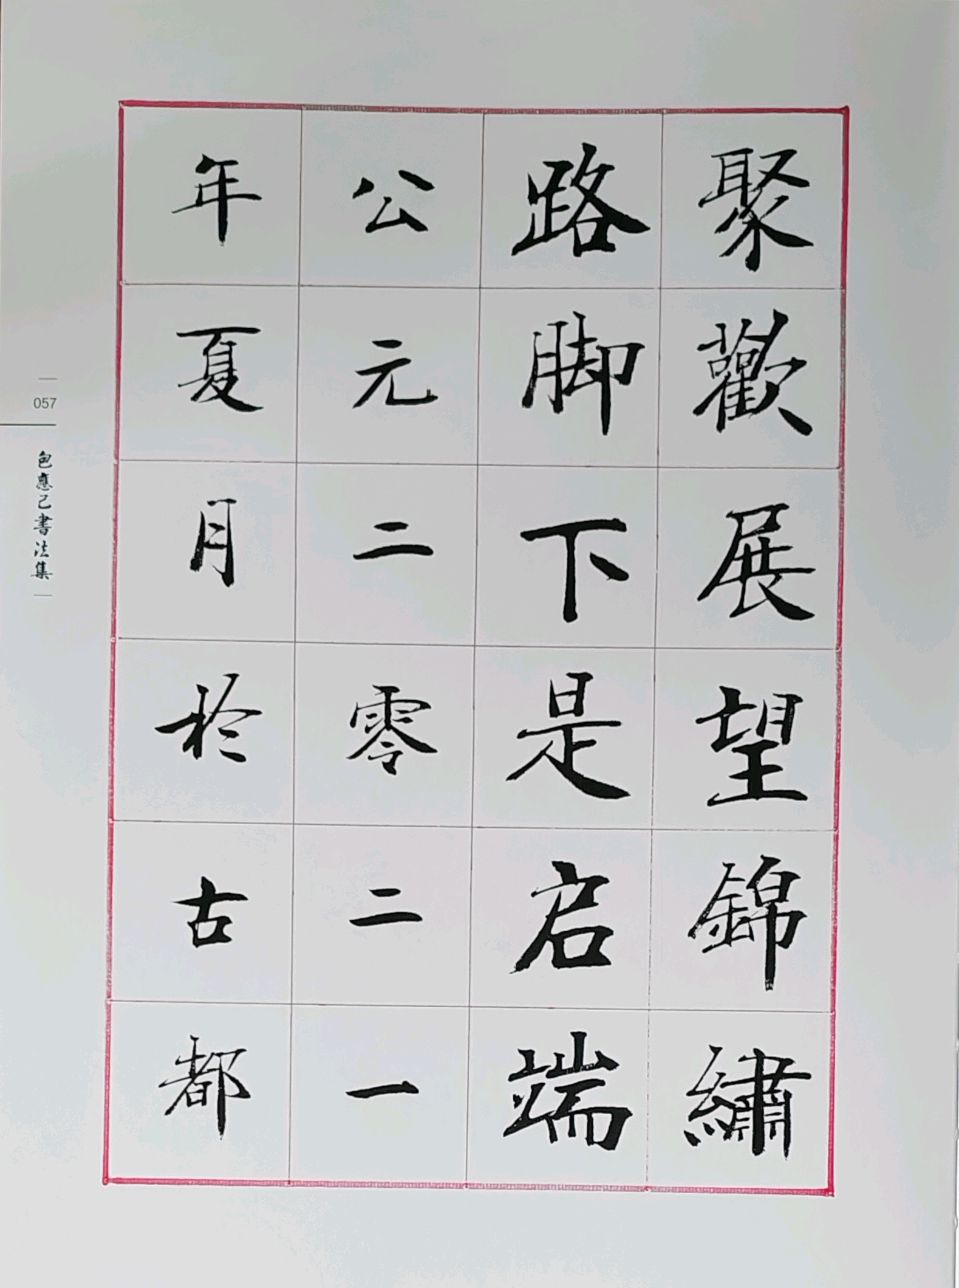 聚歡展望錦繡
路脚下是启端
公元二零二一
年夏月於古都
057
包應己書法集